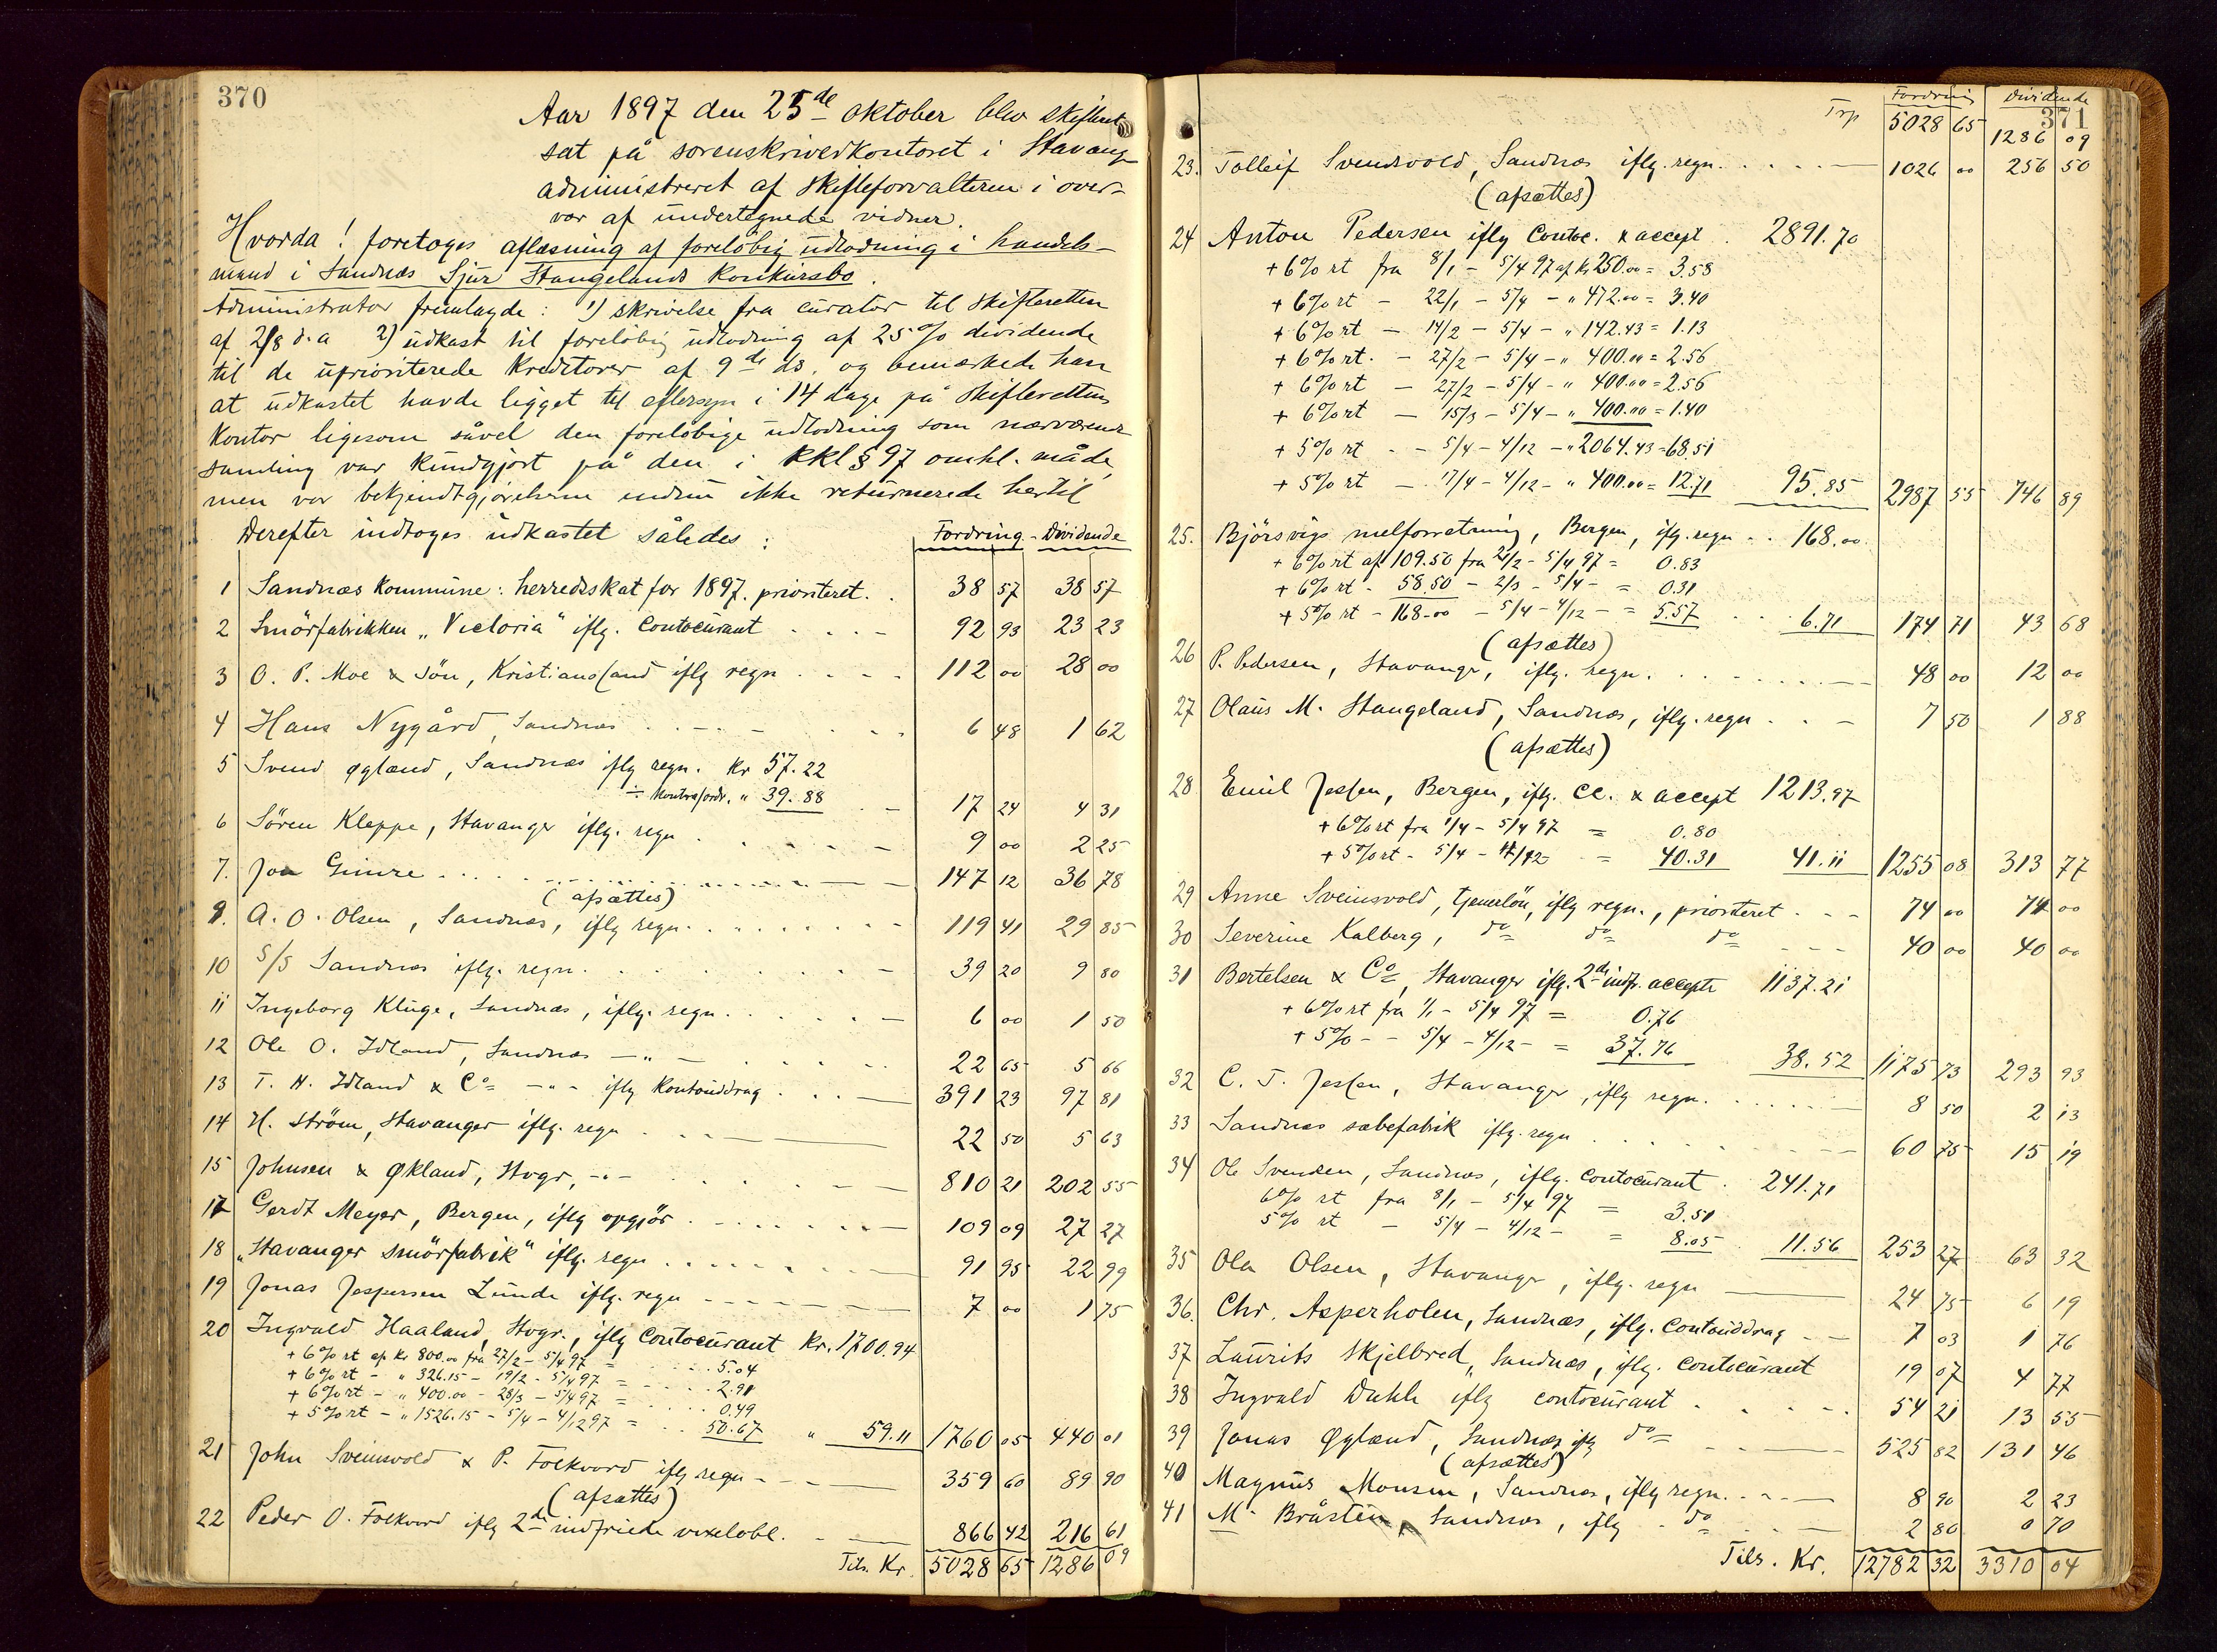 370
Aar 1897 den 25de oktober blev skifteret
sat på sorenskriverkontoret i Stavang
administreret af skifteforvalteren i over-
vær af undertegnede vidner.
Hvorda! foretoges aflæsning af foreløbig udlodning i handels-
mand i Sandnæs Sjur Stangelands konkursbo.
Administrator fremlagde: 1) skrivelse fra curator til skifteretten
af 2/8 d.a 2) udkast til foreløbig udlodning af 25% dividende
til de uprioriterede kreditorer af 9de ds. og bemærkede han
at udkastet havde ligget til eftersyn i 14 dage på skifterettens
kontor ligesom såvel den foreløbige udlodning som nærværende
samling var kundgjort på den i KKL § 97 omhl. måde,
men var bekjendtgjørelserne endnu ikke returnerede hertil
Derefter indtoges udkastet således:
Fordring - Dividende
1 Sandnæs kommune: herredsskat for 1897. prioriteret. . 38 57 38 57
2 Smörfabrikken "Victoria" iflg. Contocurant . . . - 92 93 23 23
3 O. P. Moe & Sön, Kristiansand iflg regn . . . . 112 00 28 00
4 Hans Nygård, Sandnæs . . . . . 6 48 1 62
5 Svend Øgland, Sandnæs iflg regn. Kr 57.22
÷ kontrafordr. " 39.88 . - 17 24 4 31
6 Sören Kleppe, Stavanger iflg. regn . . . . - 9 00 2 25
7. Jon Gimre . . . . . . . . 147 12 36 78
(afsættes)
9. A. O. Olsen, Sandnæs, iflg regn. . . . . . 119 41 29 85
10 S/S Sandnæs iflg. regn. . . . . . - 39 20 9 80
11 Ingeborg Kluge, Sandnæs, iflg. regn. . . . - 6 00 1 50
12 Ole O. Idland, Sandnæs - " - . . . . 22 65 5 66
13 T. H. Idland & Co - " - iflg Kontouddrag . . . - 391 23 97 81
14 H. Ström, Stavanger iflg. regn . . . 22 50 5 63
15 Johnsen & Økland, Stvgr, - " - . . . - 810 21 202 55
17 Gerdt Meyer, Bergen, iflg opgjör . . . . - 109 09 27 27
18 "Stavanger Smörfabrik" iflg. regn . . . . - 91 95 22 99
19 Jonas Jespersen Lunde iflg. regn - - - - 7 00 1 75
20 Ingvald Haaland, Stvgr., iflg Contocurant Kr. 1700.94
+ 6% rt af Kr 800.00 fra 27/2 - 5/4 97 = . . . 5.04
+ 6% rt - " 326.15 - 19/2 - 5/4 97 = . . . 2.91
+ 6% rt - " 400.00 - 28/3 - 5/4 97 = . . . 0.49
+ 5% rt - " 1526.15 - 5/4 - 4/12 97 = . . 50.67 " 59.11 1760 05 440 01
21 John Sveinsvold & P. Folkvord iflg regn - - - 359 60 89 90
(afsættes)
22 Peder O. Folkvord iflg 2de indfriede vexelobl. . 866 42 216 61
Tils. Kr. 5028 65 1286 09
371
Fordring Dividende
Trp 5028 65 1286 09
23. Tolleif Svendsvold, Sandnæs iflg. regn. . . . . 1026 00 256 50
(afsættes)
24 Anton Pedersen iflg Contoc. & accept . 2891.70
+ 6% rt fra 8/1 - 5/4 97 af Kr 250.00 = 3.58
+ 6% rt - 22/1 - 5/4 - " 472.00 = 3.40
+ 6% rt - 14/2 - 5/4 - " 142.43 = 1.13
+ 6% rt. - 27/2 - 5/4 - " 400.00 = 2.56
+ 6% rt - 27/2 - 5/4 - " 400.00 = 2.56
+ 6% rt - 15/3 - 5/4 - " 400.00 = 1.40
+ 5% rt - - 5/4 - 4/12 - " 2064.43 = 68.51
+ 5% rt - 17/4 - 4/12 - " 400.00 = 12.71 95.85 2987 55 746 89
25. Björsvigs melforretning, Bergen, iflg. regn . . 168.00
+ 6% rt af 109.50 fra 21/2 - 5/4 97 = 0.83
+ 6% rt - 58.50 - 2/3 - 5/4 - = 0.31
+ 5% rt - 168.00 - 5/4 - 4/12 - = 5.57 . . 6.71 174 71 43 68
(afsættes)
26 P. Pedersen, Stavanger, iflg. regn. . . . . . - 48 00 12 00
27 Olaus M. Stangeland, Sandnæs, iflg. regn . . - 7 50 1 88
(afsættes)
28 Emil Jessen, Bergen, iflg. CC. & accept 1213.97
+ 6% rt fra 1/4 - 5/4 97 = 0.80
+ 5% rt - 5/4 - 4/12 - = 40.31 41.11 1255 08 313 77
29 Anne Sveinsvold, tjenerlön, iflg regn., prioriteret . - - 74 00 74 00
30 Severine Kalberg, do do do - - - 40 00 40 00
31 Bertelsen & Co, Stavanger iflg. 2de indfr. accepte 1137.21
+ 6% rt fra 1/1 - 5/4 97 = 0.76
+ 5% - - 5/4 - 4/12 - = 37.76 38.52 1175 73 293 93
32 C. T. Jessen, Stavanger, iflg regn. . . . . 8 50 2 13
33 Sandnæs sæbefabrik iflg. regn . . . . - 60 75 15 19
34 Ole Svendsen, Sandnæs, iflg. Contocurant . 241.71
6% rt fra 8/1 - 5/4 97 = 3.51
5% rt - 5/4 - 4/12 - = 8.05 11.56 253 27 63 32
35 Ola Olsen, Stavanger, iflg. regn 24 75 6 19
36. Chr. Asperholen, Sandnæs, iflg. Contouddrag - - 7 03 1 76
37 Laurits Skjelbred, Sandnæs, iflg. Contocurant 19 07 4 77
38 Ingvald Dahle iflg contocurant . . . . 54 21 13 55
39 Jonas Øgland, Sandnæs iflg do . - 525 82 131 46
(afsættes)
40 Magnus Monsen, Sandnæs, iflg regn. - - - 8 90 2 23
41 M. Bråstein, Sandnæs, iflg - do . . - 2 80 0 70
Tils. Kr. 12782 32 3310 04